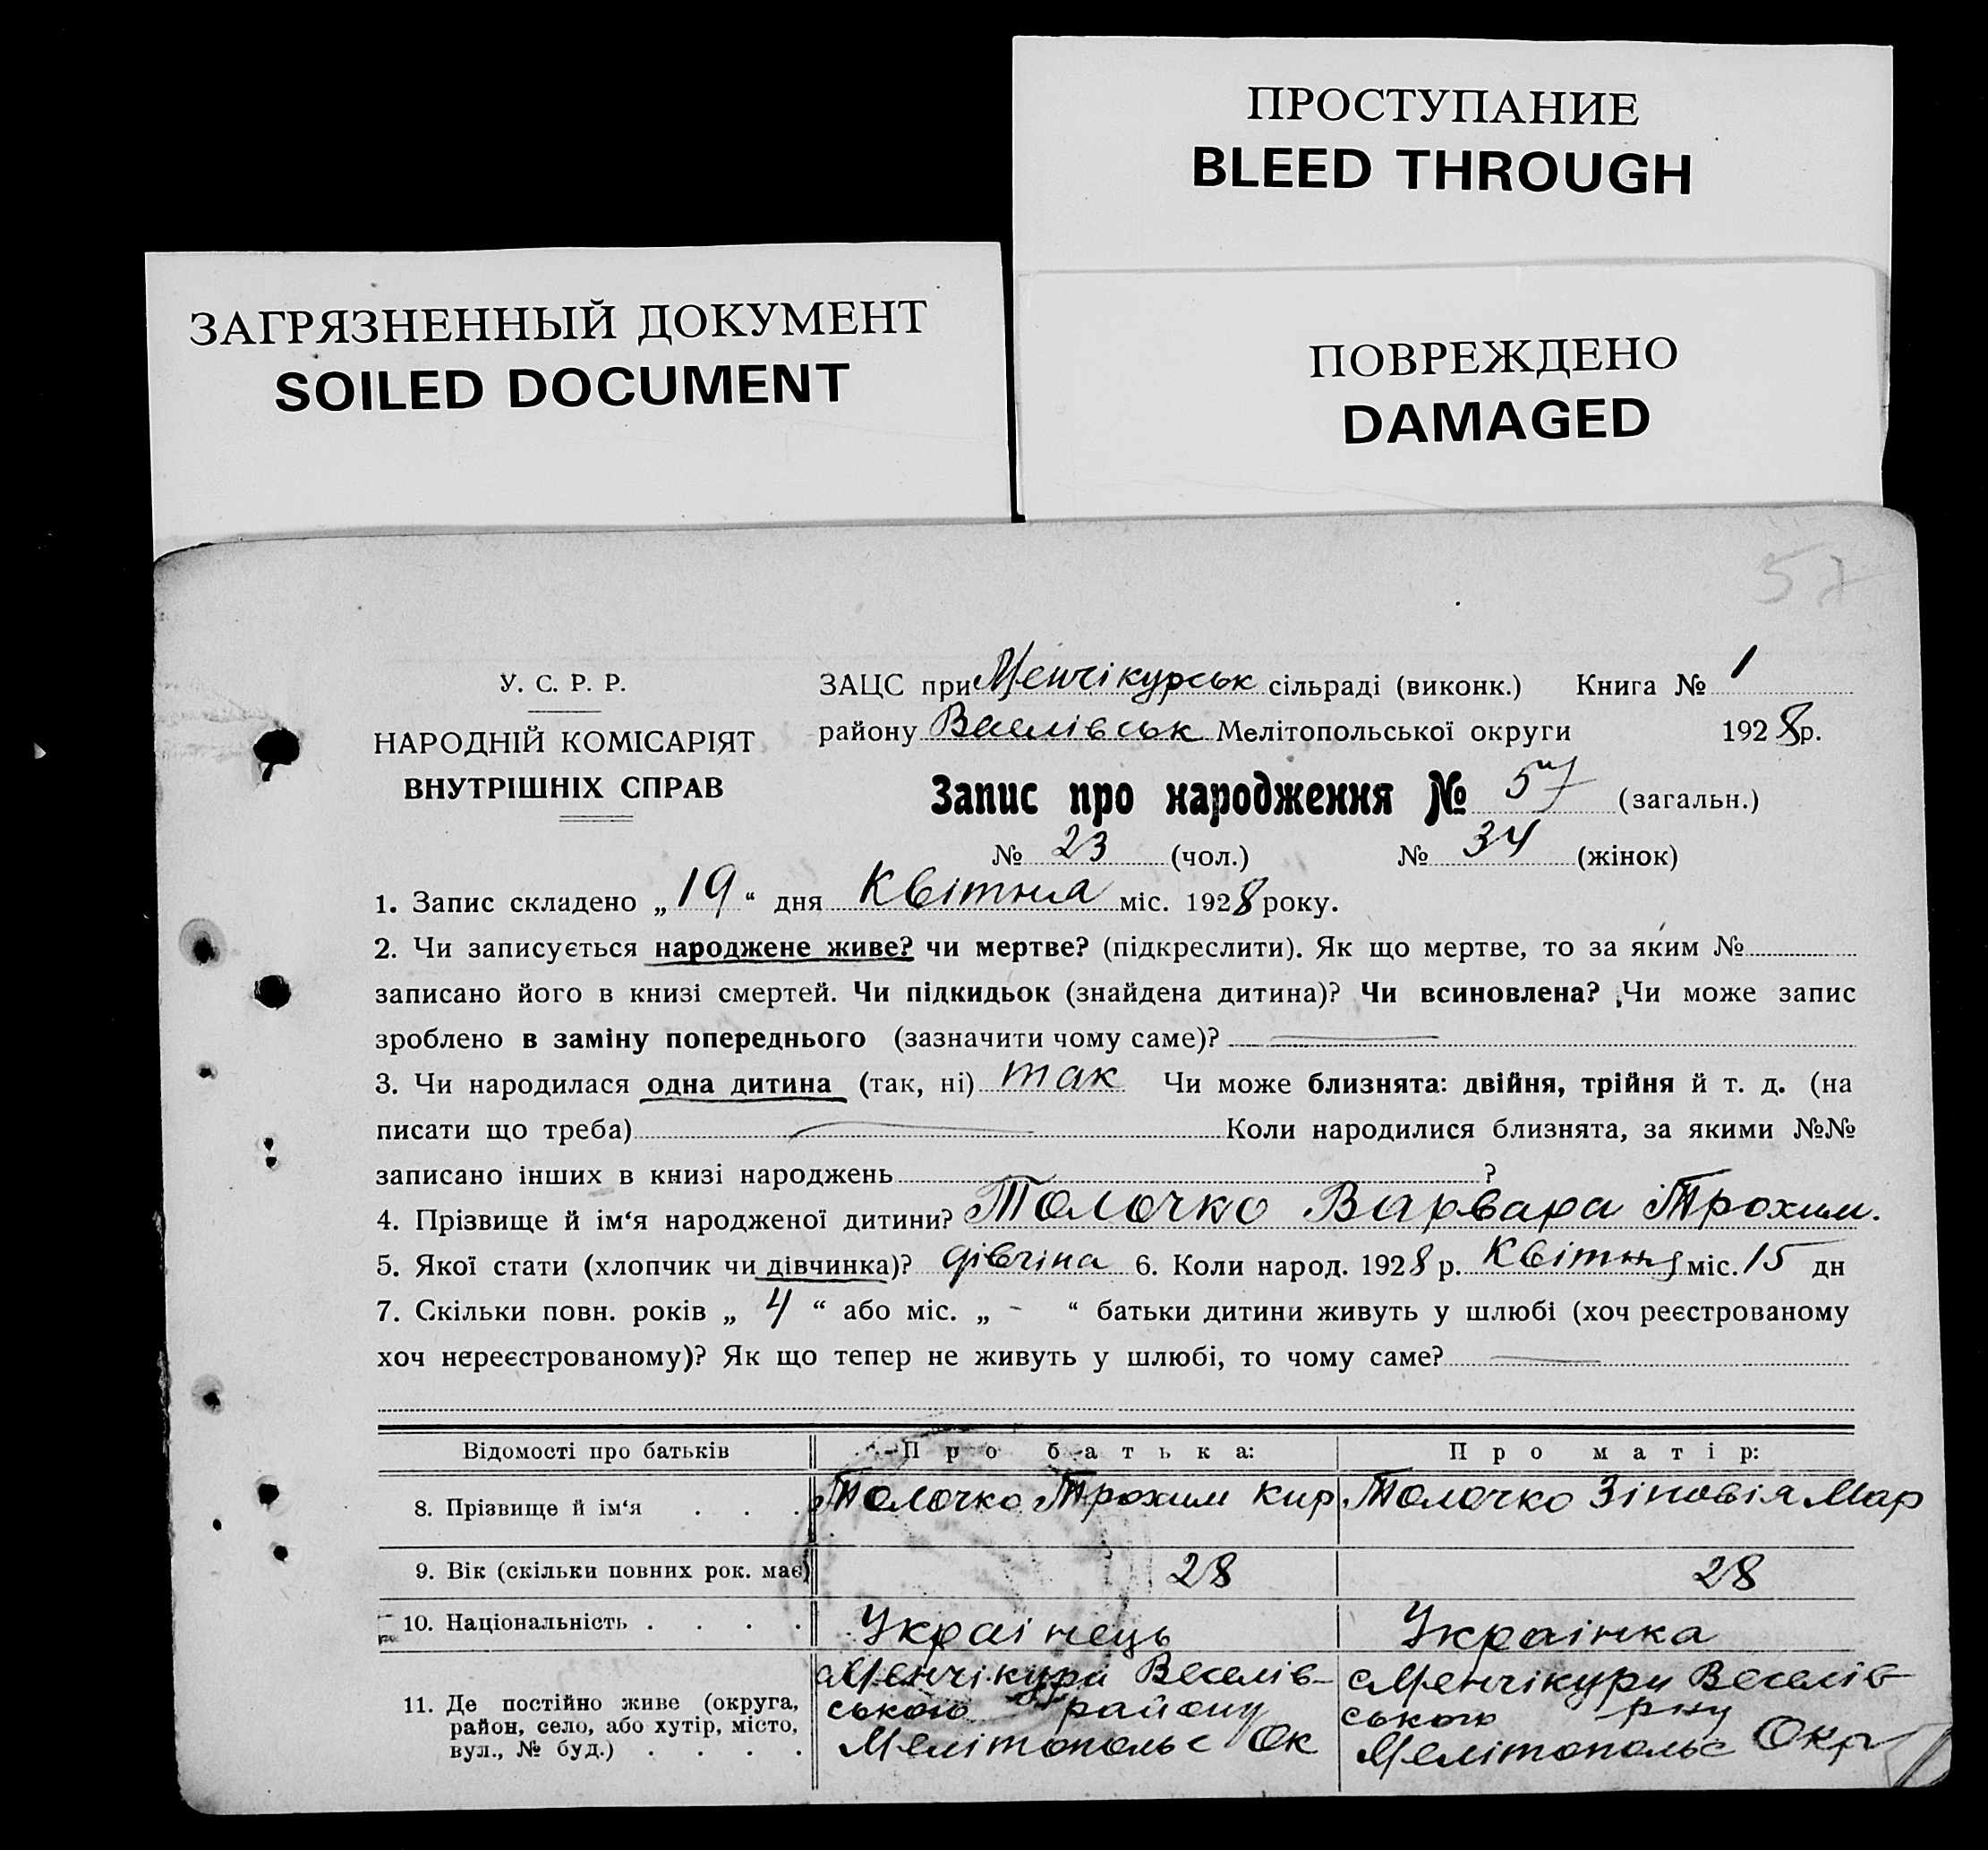 ПРОСТУПАНИЕ
BLEED THROUGH
ЗАГРЯЗНЕННЫЙ ДОКУМЕНТ
SOILED DOCUMENT
ПОВРЕЖДЕНО
DAMAGED
57
У. С. Р. Р.
НАРОДНІЙ КОМІСАРІЯТ
ВНУТРІШНІХ СПРАВ
ЗАЦС при Менчікурськ сільраді (виконк.) Книга № 1
району Веселівськ Мелітопольської округи 1928р.
Запис про народження № 57 (загальн.)
№ 23 (чол.) № 34 (жінок)
1. Запис складено „19“ дня Квітня міс. 1928 року.
2. Чи записується народжене живе? чи мертве? (підкреслити). Як що мертве, то за яким №
записано його в книзі смертей. Чи підкидьок (знайдена дитина)? Чи всиновлена? Чи може запис
зроблено в заміну попереднього (зазначити чому саме)?
3. Чи народилася одна дитина (так, ні) так Чи може близнята: двійня, трійня й т. д. (на
писати що треба) Коли народилися близнята, за якими №№
записано інших в книзі народжень ?
4. Прізвище й ім‘я народженої дитини? Толочко Варвара Трохим.
5. Якої стати (хлопчик чи дівчинка)? дівчіна 6. Коли народ. 1928 р. Квітня міс. 15 дн
7. Скільки повн. років „ 4 “ або міс. „ - “ батьки дитини живуть у шлюбі (хоч реєстрованому
хоч нереєстрованому)? Як що тепер не живуть у шлюбі, то чому саме?
Відомості про батьків Про батька: Про матір:
8. Прізвище й ім‘я . . . Толочко Трохим Кир Толочко Зіновія Мар
9. Вік (скільки повних рок. має) 28 28
10. Національність . . . . Украінець Украінка
11. Де постійно живе (округа, Менчікури Веселів- Менчікури Веселів-
район, село, або хутір, місто, ського району ського рну
вул., № буд.) . . . . Мелітопольс Ок Мелітопольс Окр